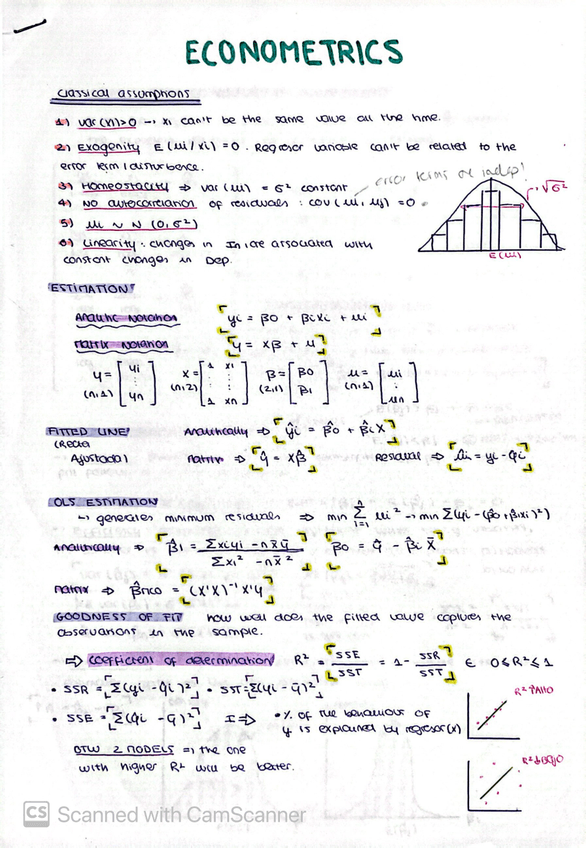 ECONOMETRICS
Classical assumptions
1) var(xi)>0 → xi can't be the same value all the time.
2) Exogenity E(ui/xi) = 0. Regresor variable can't be related to the
error term / disturbence.
3) Homeostacity ⇒ var(ui) = σ² constant
error terms are indep!
4) No autocorrelation of residuals : cov(ui, uj) = 0
5) ui ~ N (0, σ²)
6) Linearity: changes in In are associated with
constant changes in Dep.
√σ²
E(ui)
ESTIMATION
Analytic Notation yi = β0 + βixi + ui
Matrix Notation y = xβ + u
y = [yi ⋮ yn] x = [1 xi ⋮ ⋮ 1 xn] β = [β0 β1] u = [ui ⋮ un]
(n,1) (n,2) (2,1) (n,1)
FITTED LINE Analytically ⇒ ŷi = β̂0 + β̂iX
(Recta
Ajustada) Matrix ⇒ ŷ = xβ̂ Residual ⇒ ûi = yi - ŷi
OLS ESTIMATION
↳ generates minimum residuals ⇒ min Σ ui² → min Σ(yi - (β0 + βixi)²)
i=1
Analytically ⇒ β̂1 = Σxiyi - nx̄ȳ / Σxi² - nx̄² β̂0 = ȳ - β̂i X̄
Matrix ⇒ β̂mco = (X'X)⁻¹ X'y
GOODNESS OF FIT How well does the fitted value captures the
observations in the sample.
⇒ Coefficient of determination R² = SSE / SST = 1 - SSR / SST ∈ 0≤R²≤1
• SSR = Σ(yi - ŷi)² • SST = Σ(yi - ȳ)²
• SSE = Σ(ŷi - ȳ)² I ⇒ • % of the behaviour of
y is explained by regresor(x)
R² ALTO
BTW 2 MODELS ⇒ the one
with higher R² will be better.
R² BAJO
CS Scanned with CamScanner